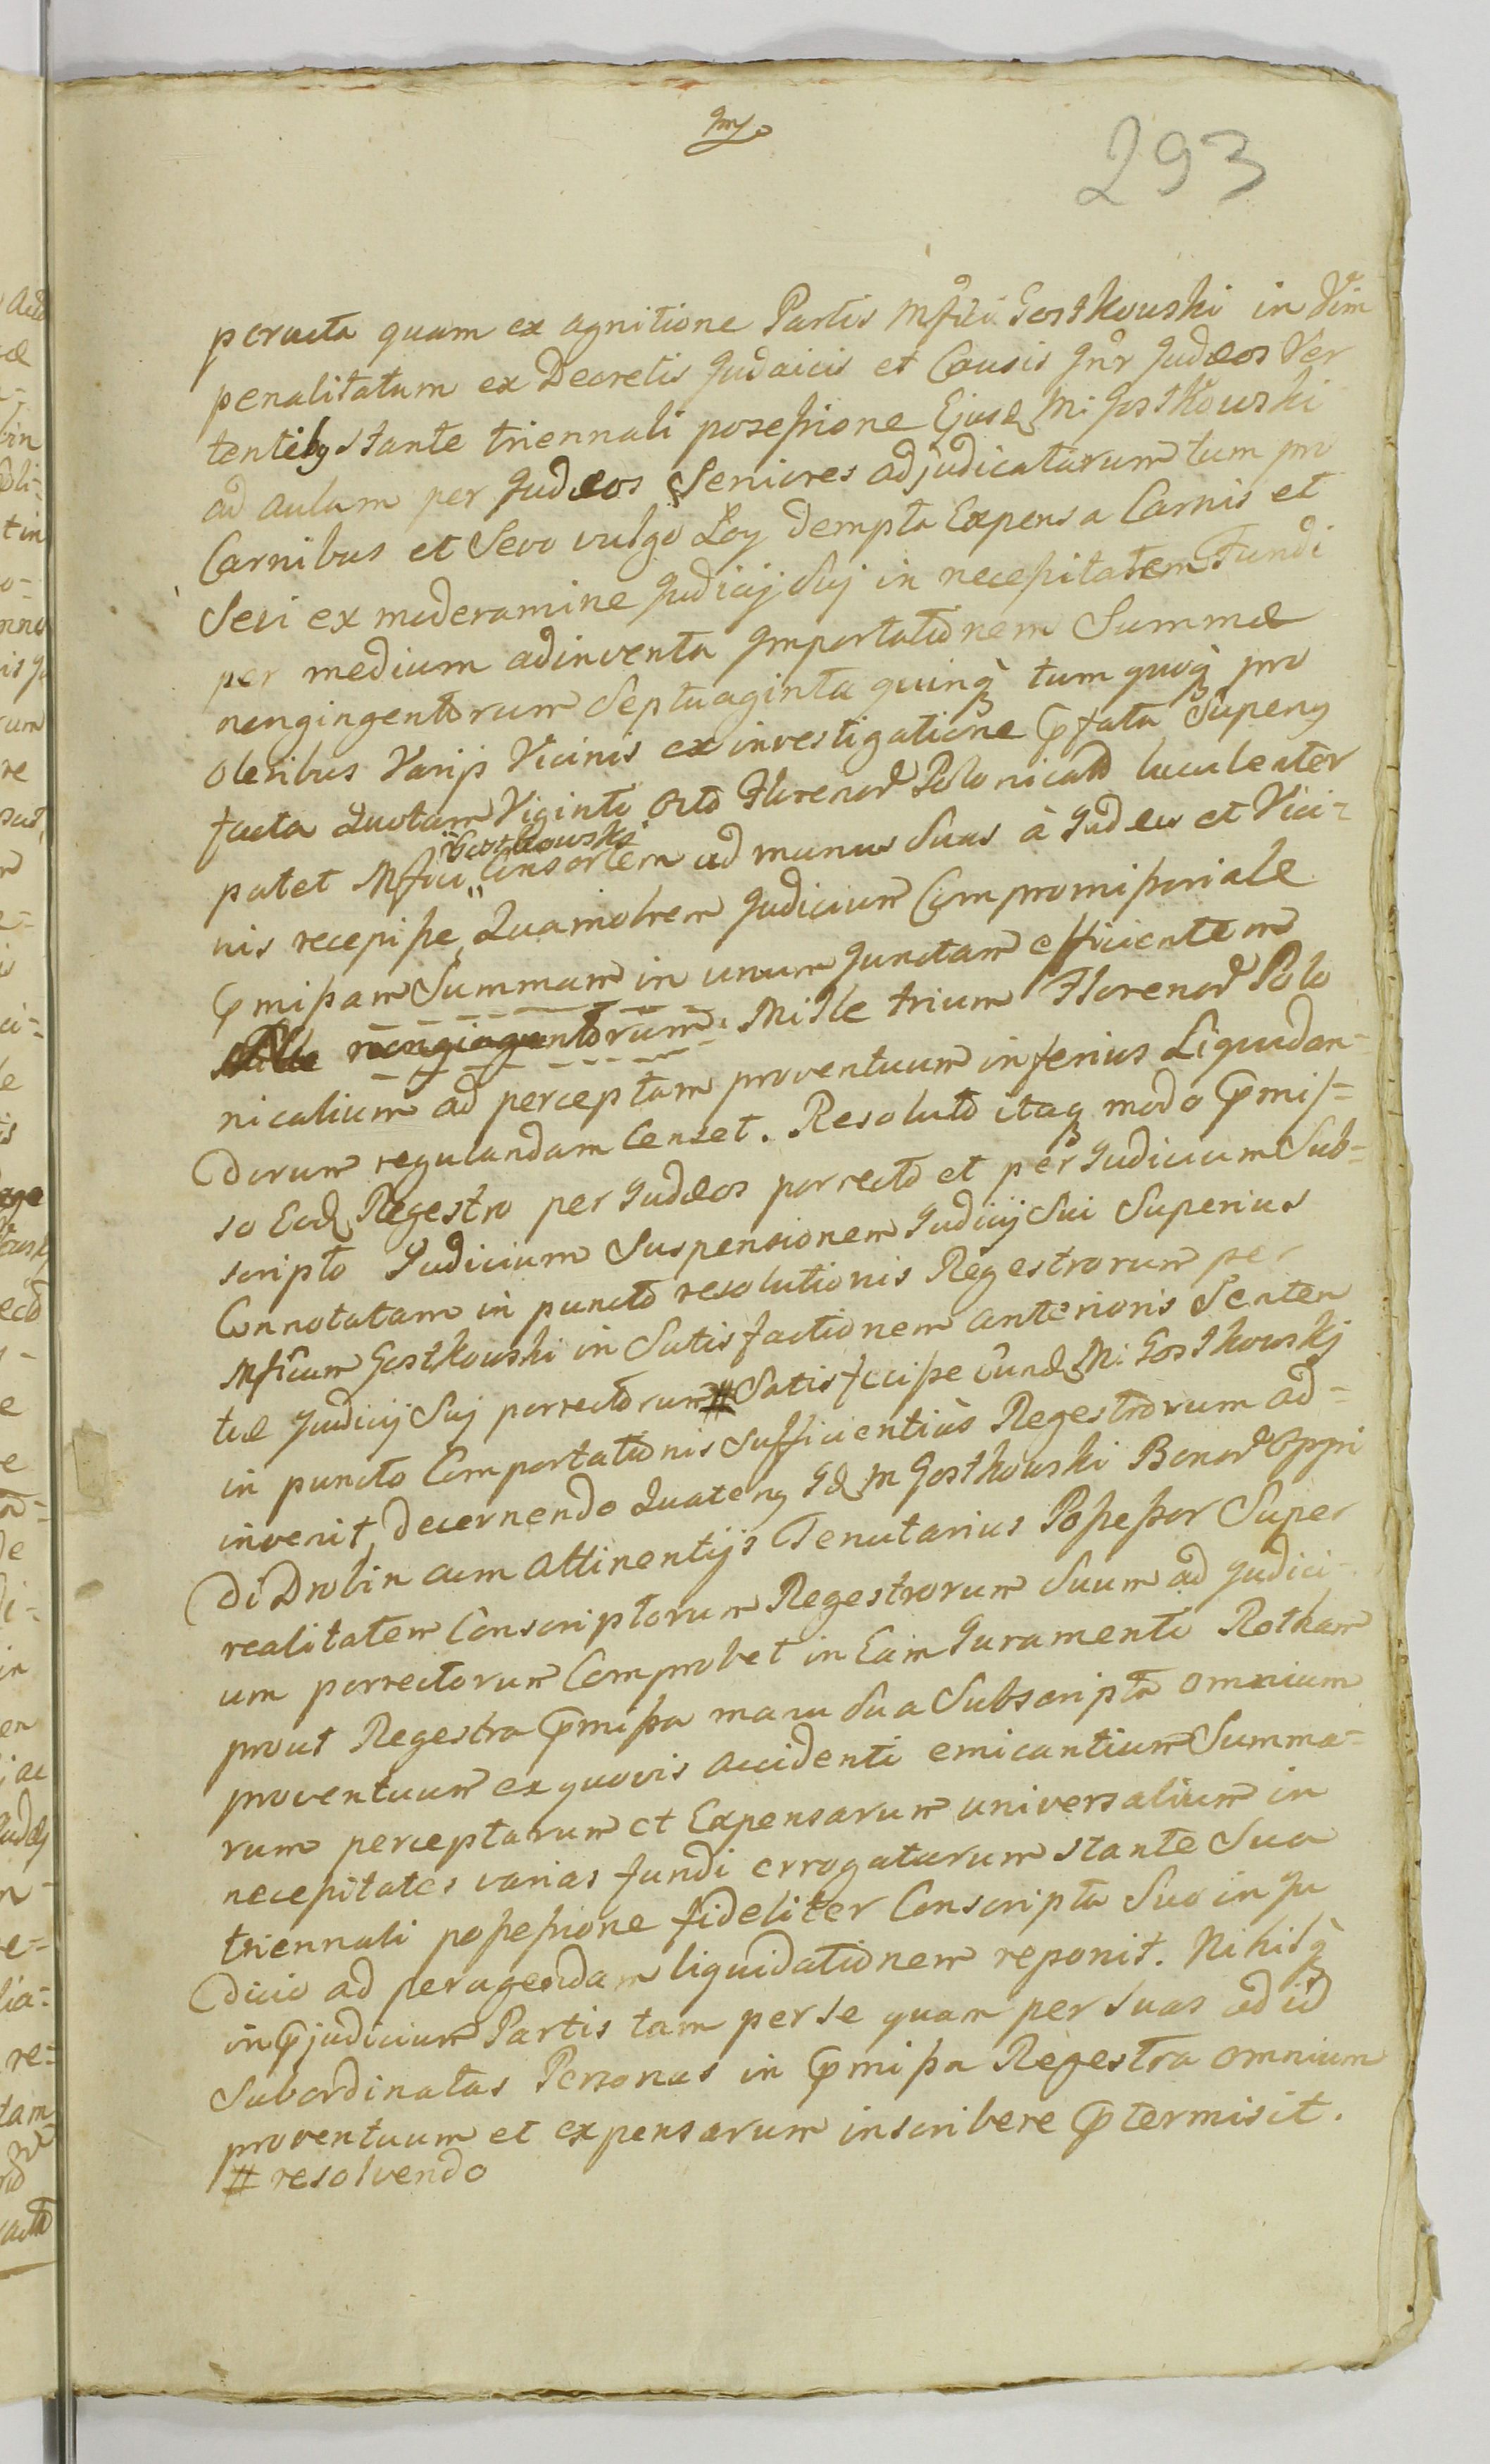 293
peracta quam ex agnitione Partis Mfici Gostkowski in vim
penalitatum ex Decretis Judaicis et Causis Inr Judæos Ver
tentibg stante triennali possessione Ejusd M: Gostkowski
ad aulam per Judæos Seniores adjudicatarum tum pro
Carnibus et Sevo vulgo Łoy dempta Expensa Carnis et
Sevi ex moderamine Judicij Sui in necessitatem Fundi
per medium adinventa Importationem Summæ
nongingentorum Septuaginta quinq tum quoq pro
Oleribus Varijs Vicinis ex investigatione Pfata Superius
facta Quotam Viginti Octo Florenor Polonicalium luculenter
Gostkowski
patet Mfici Consortem ad manus Suas à Judæis et Vici-
nis recepisse, Quamobrem Judicium Compromissoriale
Pmissam Summam in unum Junctam efficientem
Mille nongingentorum Mille trium Florenor Polo
nicalium ad perceptam proventuum inferius Liquidan-
dorum regulandam Censet. Resoluto itaq modo Pmis-
so Eod Regestro per Judæos porrecto et per Judicium Sub-
scripto Judicium Suspensionem Judicij Sui Superius
Connotatam in puncto resolutionis Regestrorum per
Mficum Gostkowski in Satisfactionem anterioris Senten
tiæ Judicij Sui porrectorum # Satisfecisse Eund M: Gostkowski
in puncto Comportationis Sufficientius Regestrorum ad-
invenit, decernendo Quateng Id M Gostkowski Bonor Oppi
di Drobin cum attinentijs Tenutarius Possessor Super
realitatem Conscriptorum Regestrorum Suum ad Judici-
um porrectorum Comprobet in Eam Juramenti Rotham
prout Regestra Pmissa manu Sua Subscripta omnium
proventuum ex quovis accidenti emicantium Summa-
rum perceptarum et Expensarum universalium in
necessitates varias fundi errogatarum stante Sua
triennali possessione fideliter Conscripta Suo in Ju
dicio ad peragendam liquidationem reponit. Nihilq
in Pjudicium Partis tam per se quam per Suas ad id
Subordinatas Personas in Pmissa Regestra omnium
proventuum et expensarum inscribere Ptermisit.
# resolvendo